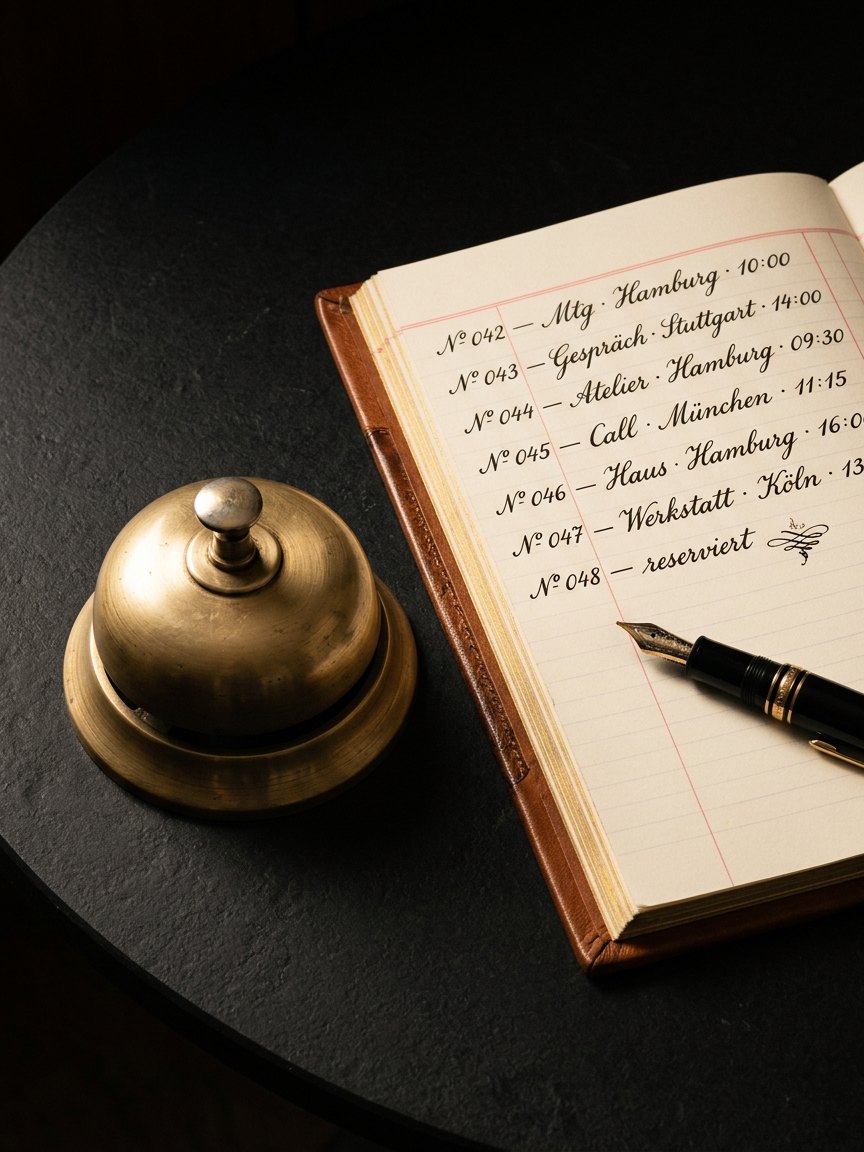 Nº 042 — Mtg · Hamburg · 10:00
Nº 043 — Gespräch · Stuttgart · 14:00
Nº 044 — Atelier · Hamburg · 09:30
Nº 045 — Call · München · 11:15
Nº 046 — Haus · Hamburg · 16:0
Nº 047 — Werkstatt · Köln · 13
Nº 048 — reserviert